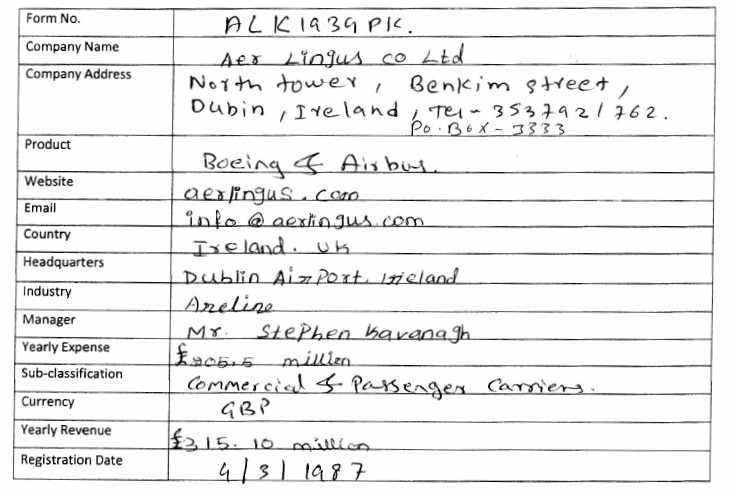 Form No. ALK1939PK.
Company Name Aer Lingus co Ltd
Company Address North tower, Benkim street,
Dubin, Ireland, Tel - 353792/762.
Po. Box - 3333
Product Boeing & Airbus.
Website aerlingus.com
Email info@aerlingus.com
Country Ireland. UK
Headquarters Dublin Airport, Ireland
Industry Areline
Manager Mr. Stephen Kavanagh
Yearly Expense million
Sub-classification Commercial & Passenger Carriers.
Currency GBP
Yearly Revenue £315.10 million
Registration Date 4/3/1987